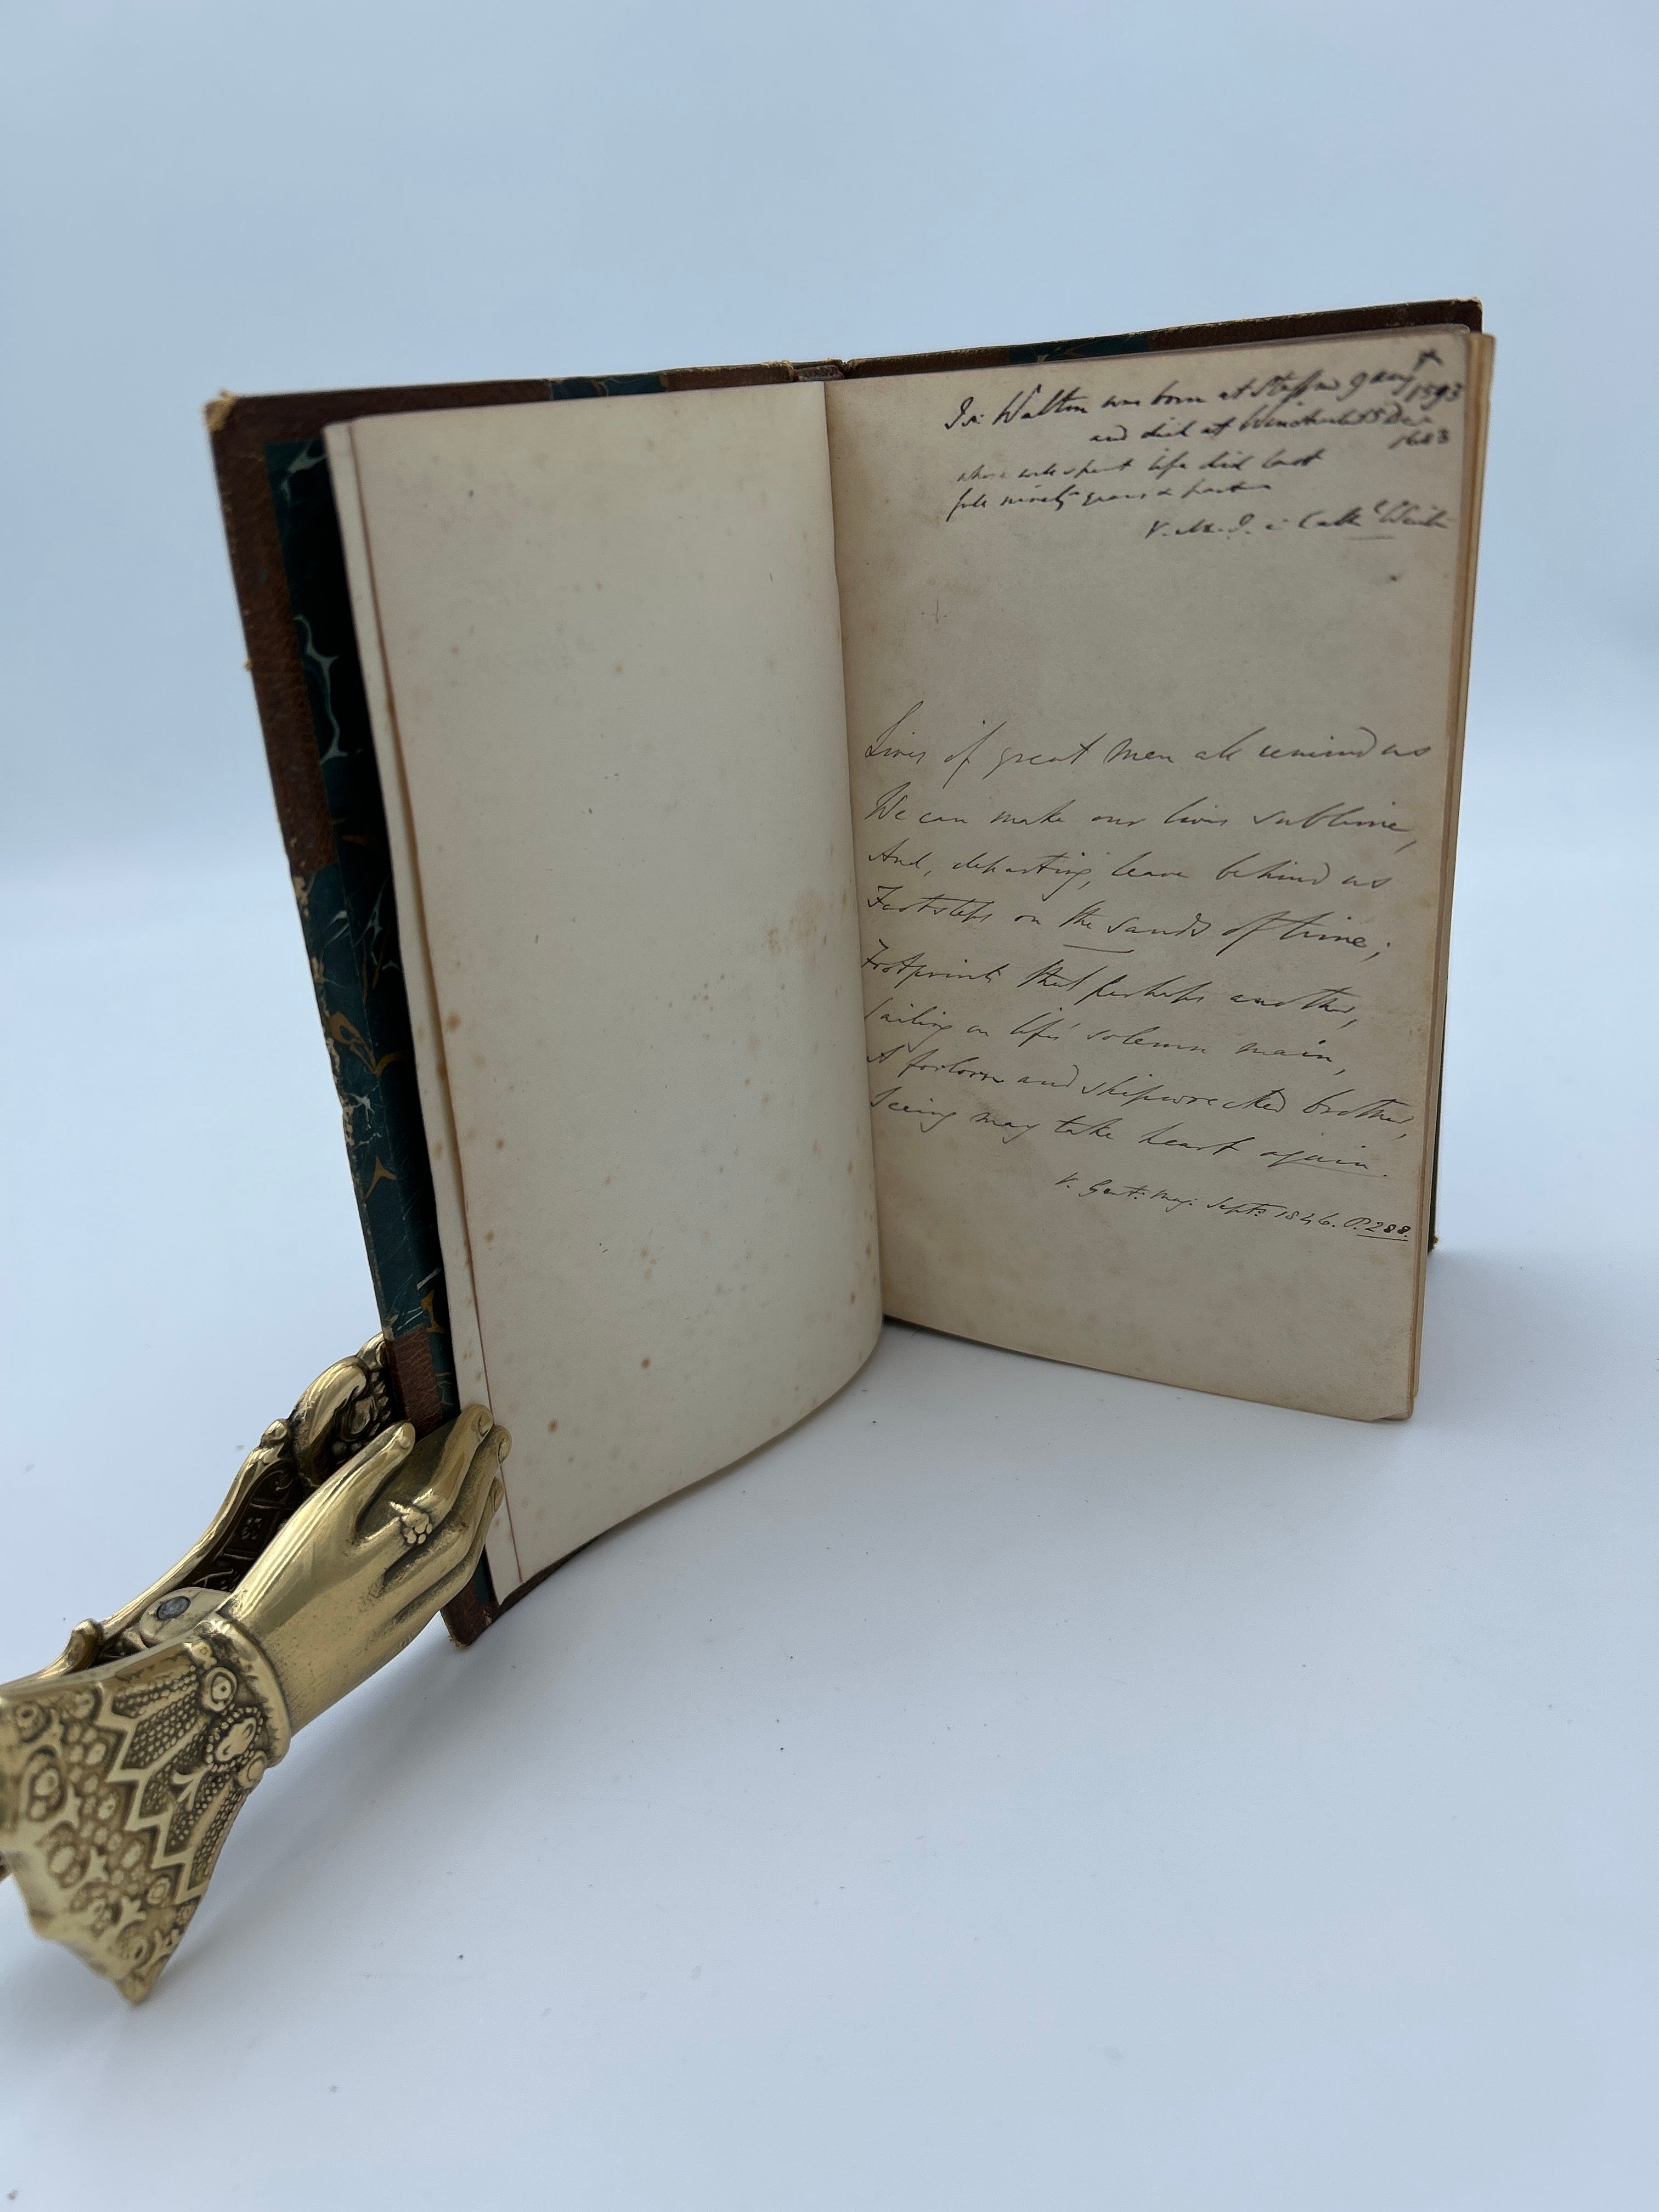 Is: Walton was born at Staffd 9 Aug 1593
and died at Winchester 15 Dec
1683
whose well spent life did last
full ninety years & past
V. M. I. in Cath:
Lives of great men all remind us
We can make our lives sublime,
And, departing, leave behind us
Footsteps on the sands of time;
Footprints that perhaps another,
Sailing on life's solemn main,
A forlorn and shipwrecked brother,
Seeing may take heart again.
V. Gent: Mag: Septr: 1846. P. 288.